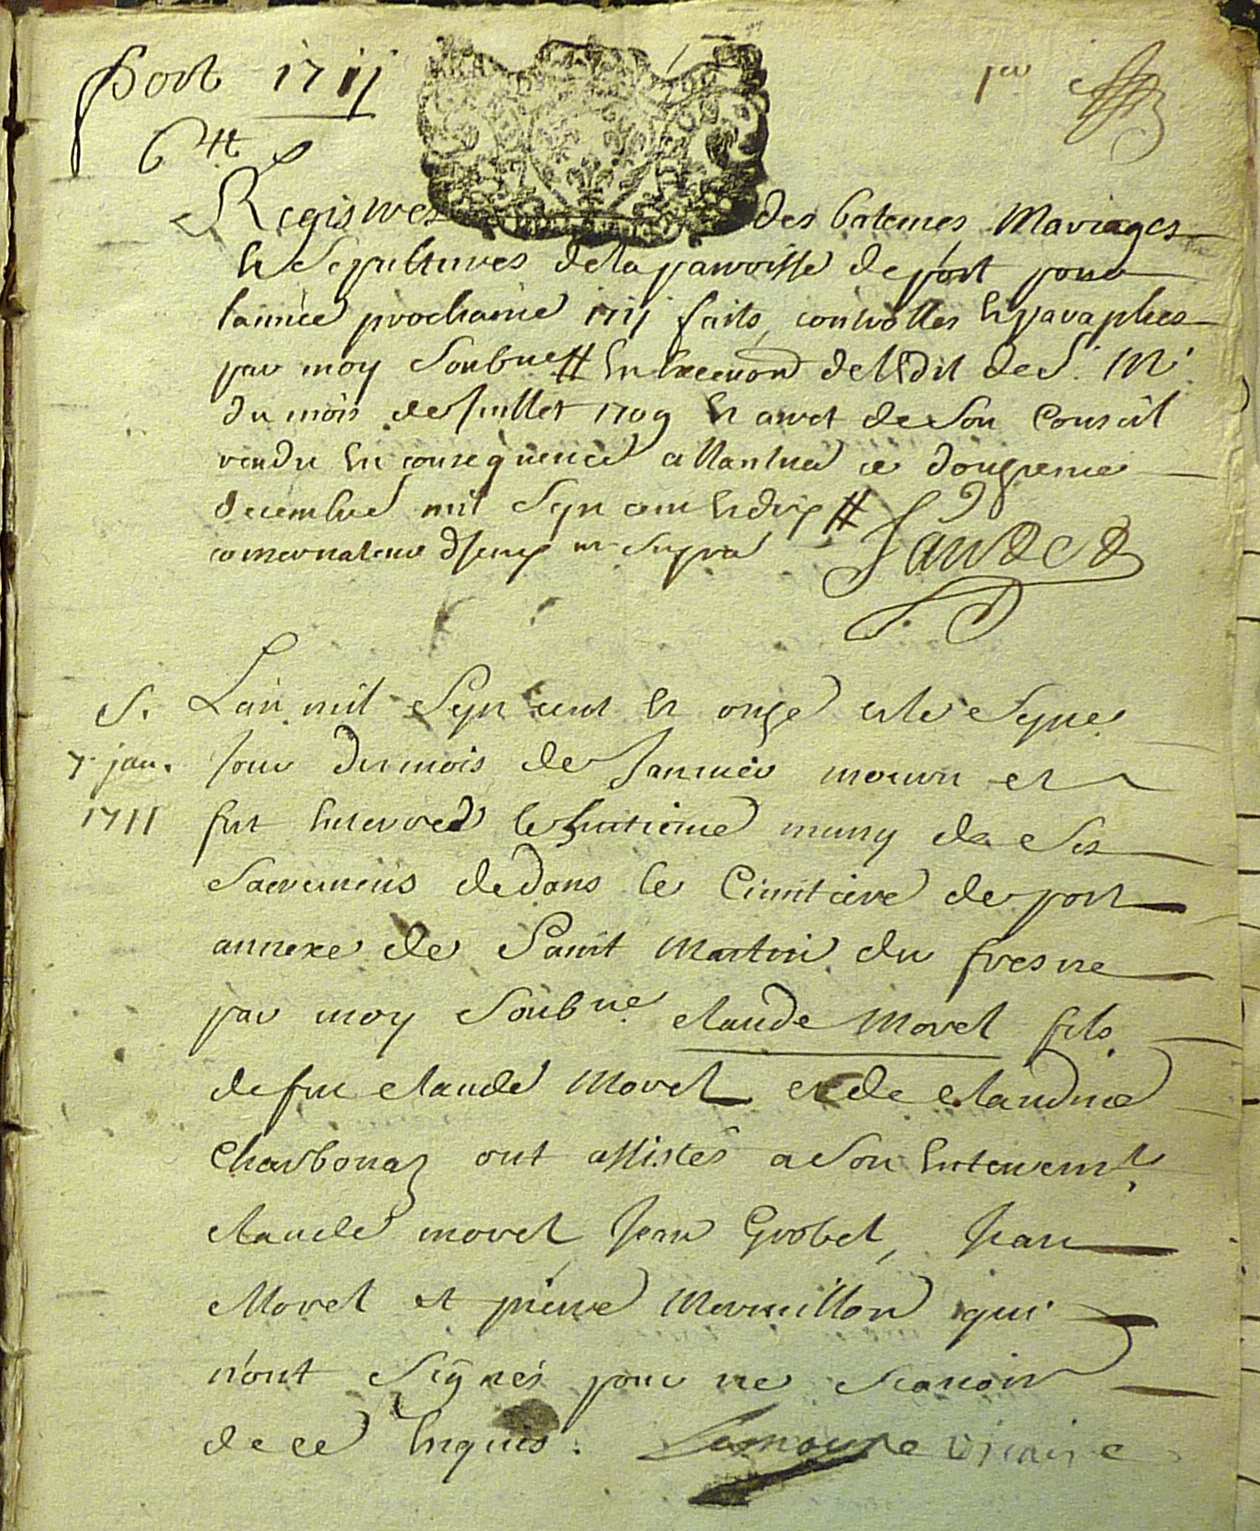 port 1711
1er
6tt
Registres des batemes Mariages
et Sepultures de la parroisse de port pour
lannèe prochaine 1711 faits, controlles et paraphes
par moy Soubne# en execuon de lEdit de S. M.
du mois de Juillet 1709 et arret de Son Conseil
rendu en consequence a Nantua ce douzieme
decembre mil Sept cent et dix #
conservateur ut Supra
S. Lan mil Sept cent et onze et le Septie
7 jan. Jour du mois de Janvier mourut et
1711 fut enterred le huitieme muny de Ses
Sacremens dedans le Cimitiere de port
annexe de Saint Martin du fresne
par moy Soubne. claude Morel fils
de feu claude Morel et de claudine
Charbonaz ont assistés a Son enterremt.
claude morel Jean Grobel, Jean
Morel et pierre Mermillon qui
n'ont Signés pour ne scavoir
de ce enquis. Lemoyne vicaire